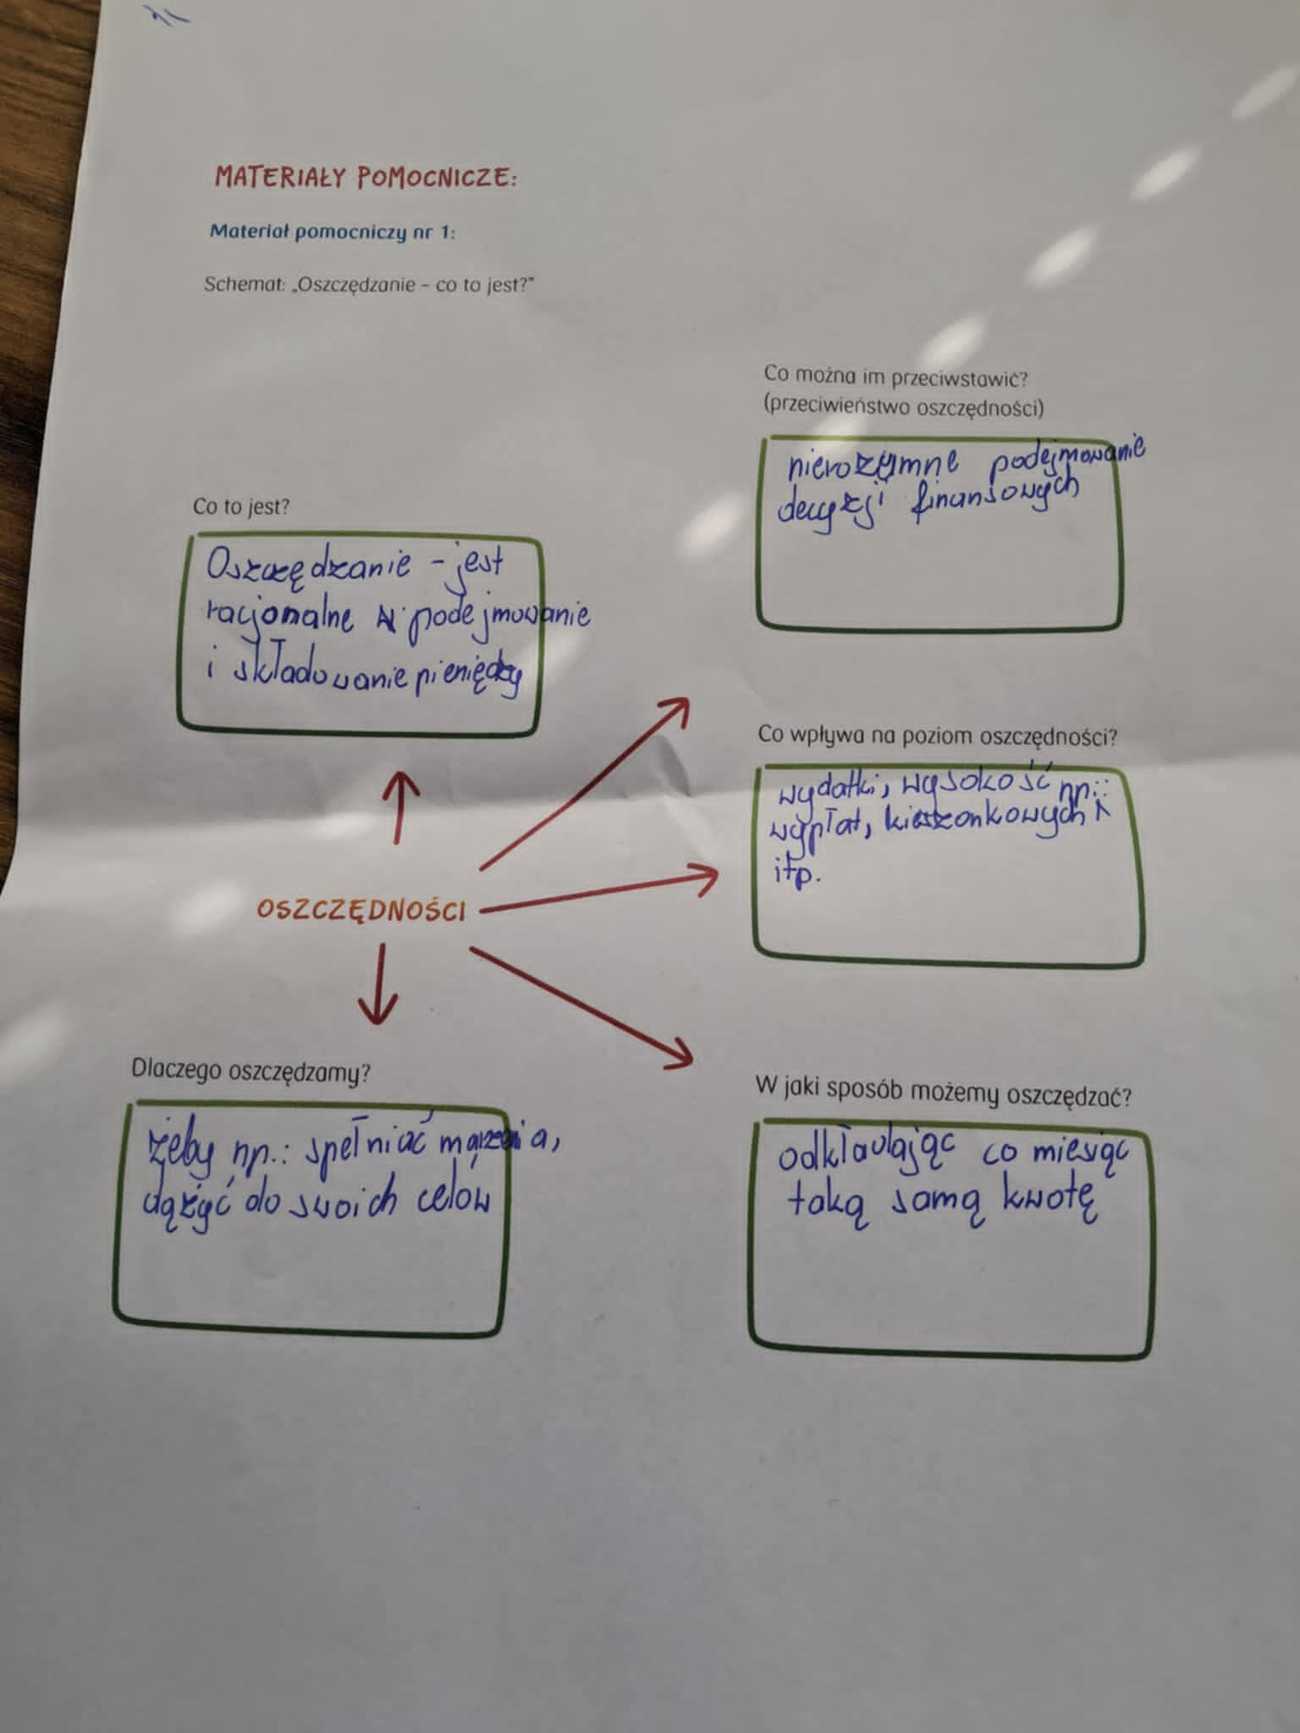 MATERIAŁY POMOCNICZE:
Materiał pomocniczy nr 1:
Schemat: „Oszczędzanie – co to jest?"
Co można im przeciwstawić?
(przeciwieństwo oszczędności)
nierozumne podejmowanie
decyzji finansowych
Co to jest?
Oszczędzanie - jest
racjonalne podejmowanie
i składowanie pieniędzy
Co wpływa na poziom oszczędności?
wydatki, wysokość np.:
wypłat, kieszonkowych
itp.
OSZCZĘDNOŚCI
Dlaczego oszczędzamy?
żeby np.: spełniać marzenia,
dążyć do swoich celów
W jaki sposób możemy oszczędzać?
odkładając co miesiąc
taką samą kwotę